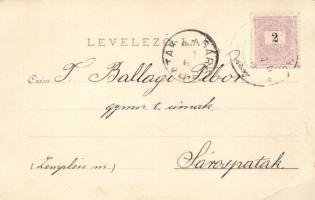 LEVELEZŐ-LAP
2
Czim T. Ballagi Tibor
gymn. t. úrnak
(Zemplén m.) Sárospatak.